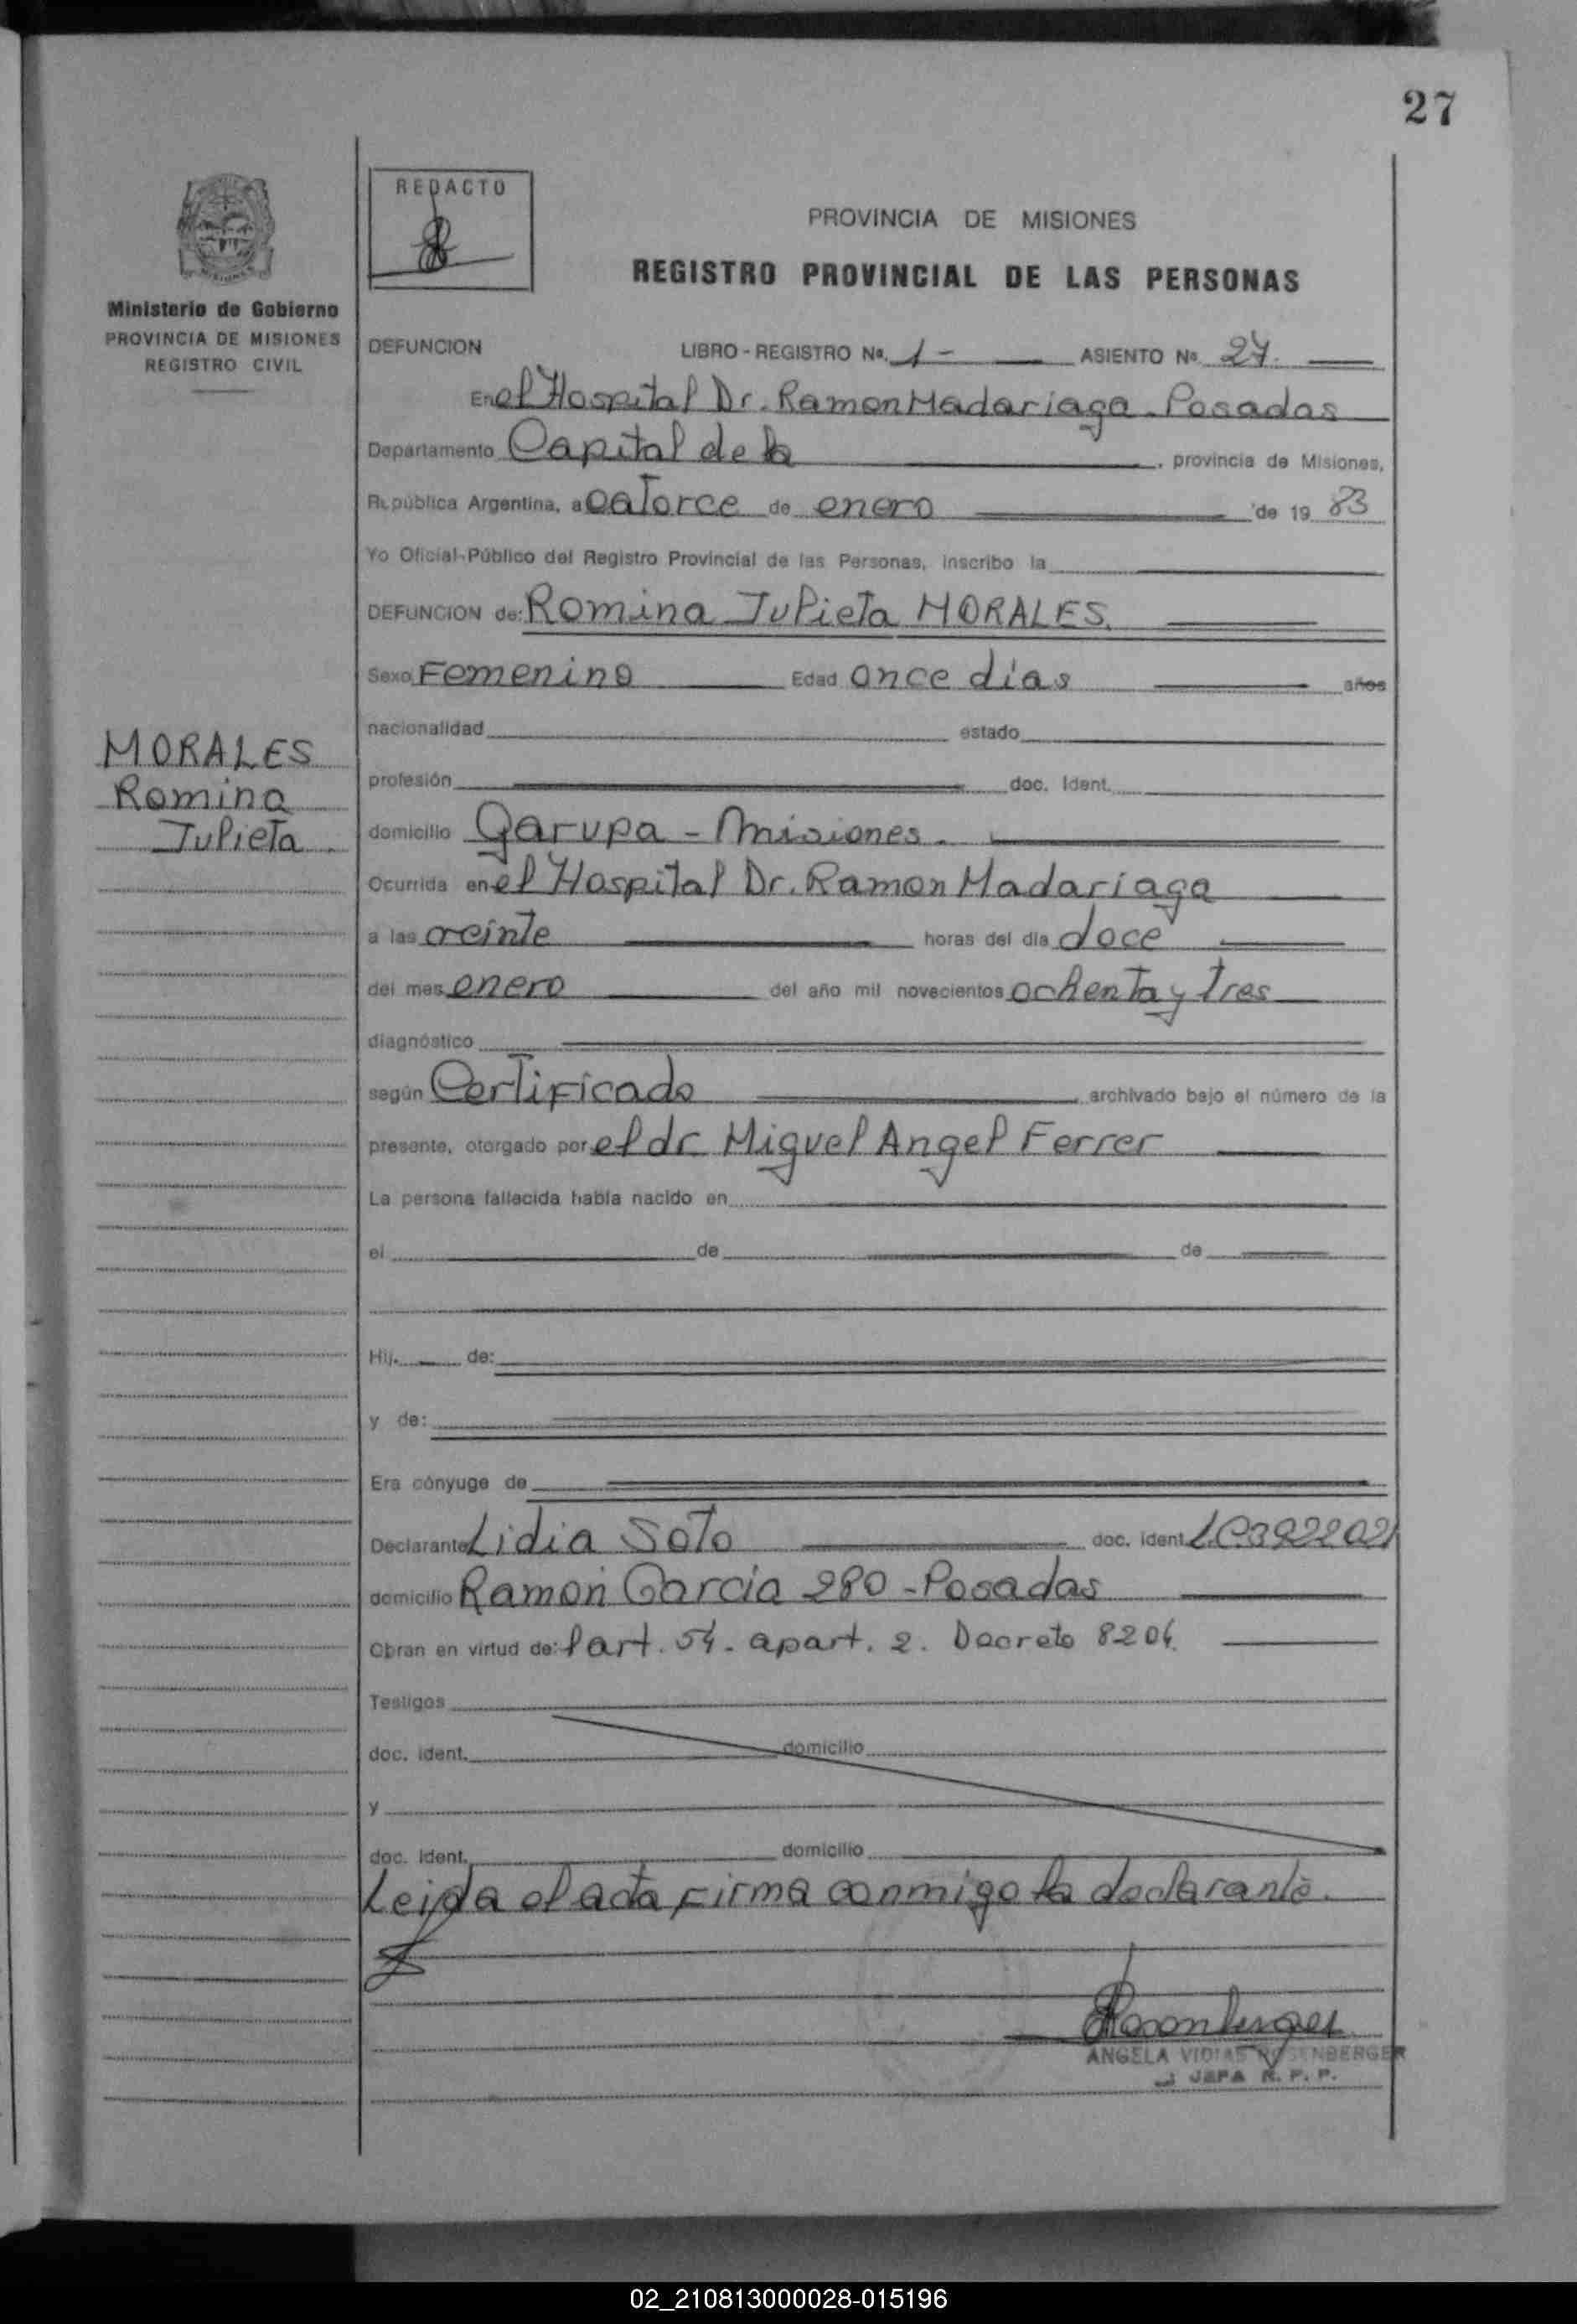 27
REDACTO
PROVINCIA DE MISIONES
REGISTRO PROVINCIAL DE LAS PERSONAS
Ministerio de Gobierno
PROVINCIA DE MISIONES
REGISTRO CIVIL
DEFUNCION LIBRO - REGISTRO Nº. 1 - ASIENTO Nº 27.
En el Hospital Dr. Ramon Madariaga - Posadas
Departamento Capital de la , provincia de Misiones,
República Argentina, a catorce de enero de 19 83
Yo Oficial-Público del Registro Provincial de las Personas, inscribo la
DEFUNCION de: Romina Julieta MORALES.
Sexo Femenino Edad once días años
nacionalidad estado
MORALES
Romina
Julieta
profesión doc. Ident.
domicilio Garupa - Misiones.
Ocurrida en el Hospital Dr. Ramon Madariaga
a las veinte horas del día doce
del mes enero del año mil novecientos ochenta y tres
diagnóstico
según Certificado archivado bajo el número de la
presente, otorgado por el dr Miguel Angel Ferrer
La persona fallecida había nacido en
el de de
Hij. de:
y de:
Era cónyuge de
Declarante Lidia Soto doc. ident. LC392202
domicilio Ramon Garcia 280 - Posadas
Obran en virtud de: l art. 54. apart. 2. Decreto 8204.
Testigos
doc. ident. domicilio
y
doc. Ident. domicilio
Leida el acta firma conmigo la declarante.
Rosenberger
ANGELA VIDIAS ROSENBERGER
JEFA R. P. P.
02_210813000028-015196